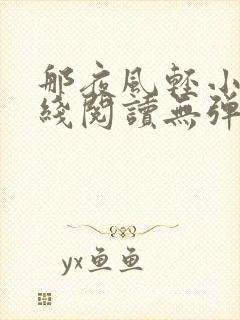 那夜風輕小
綫閱讀無彈
yx鱼鱼